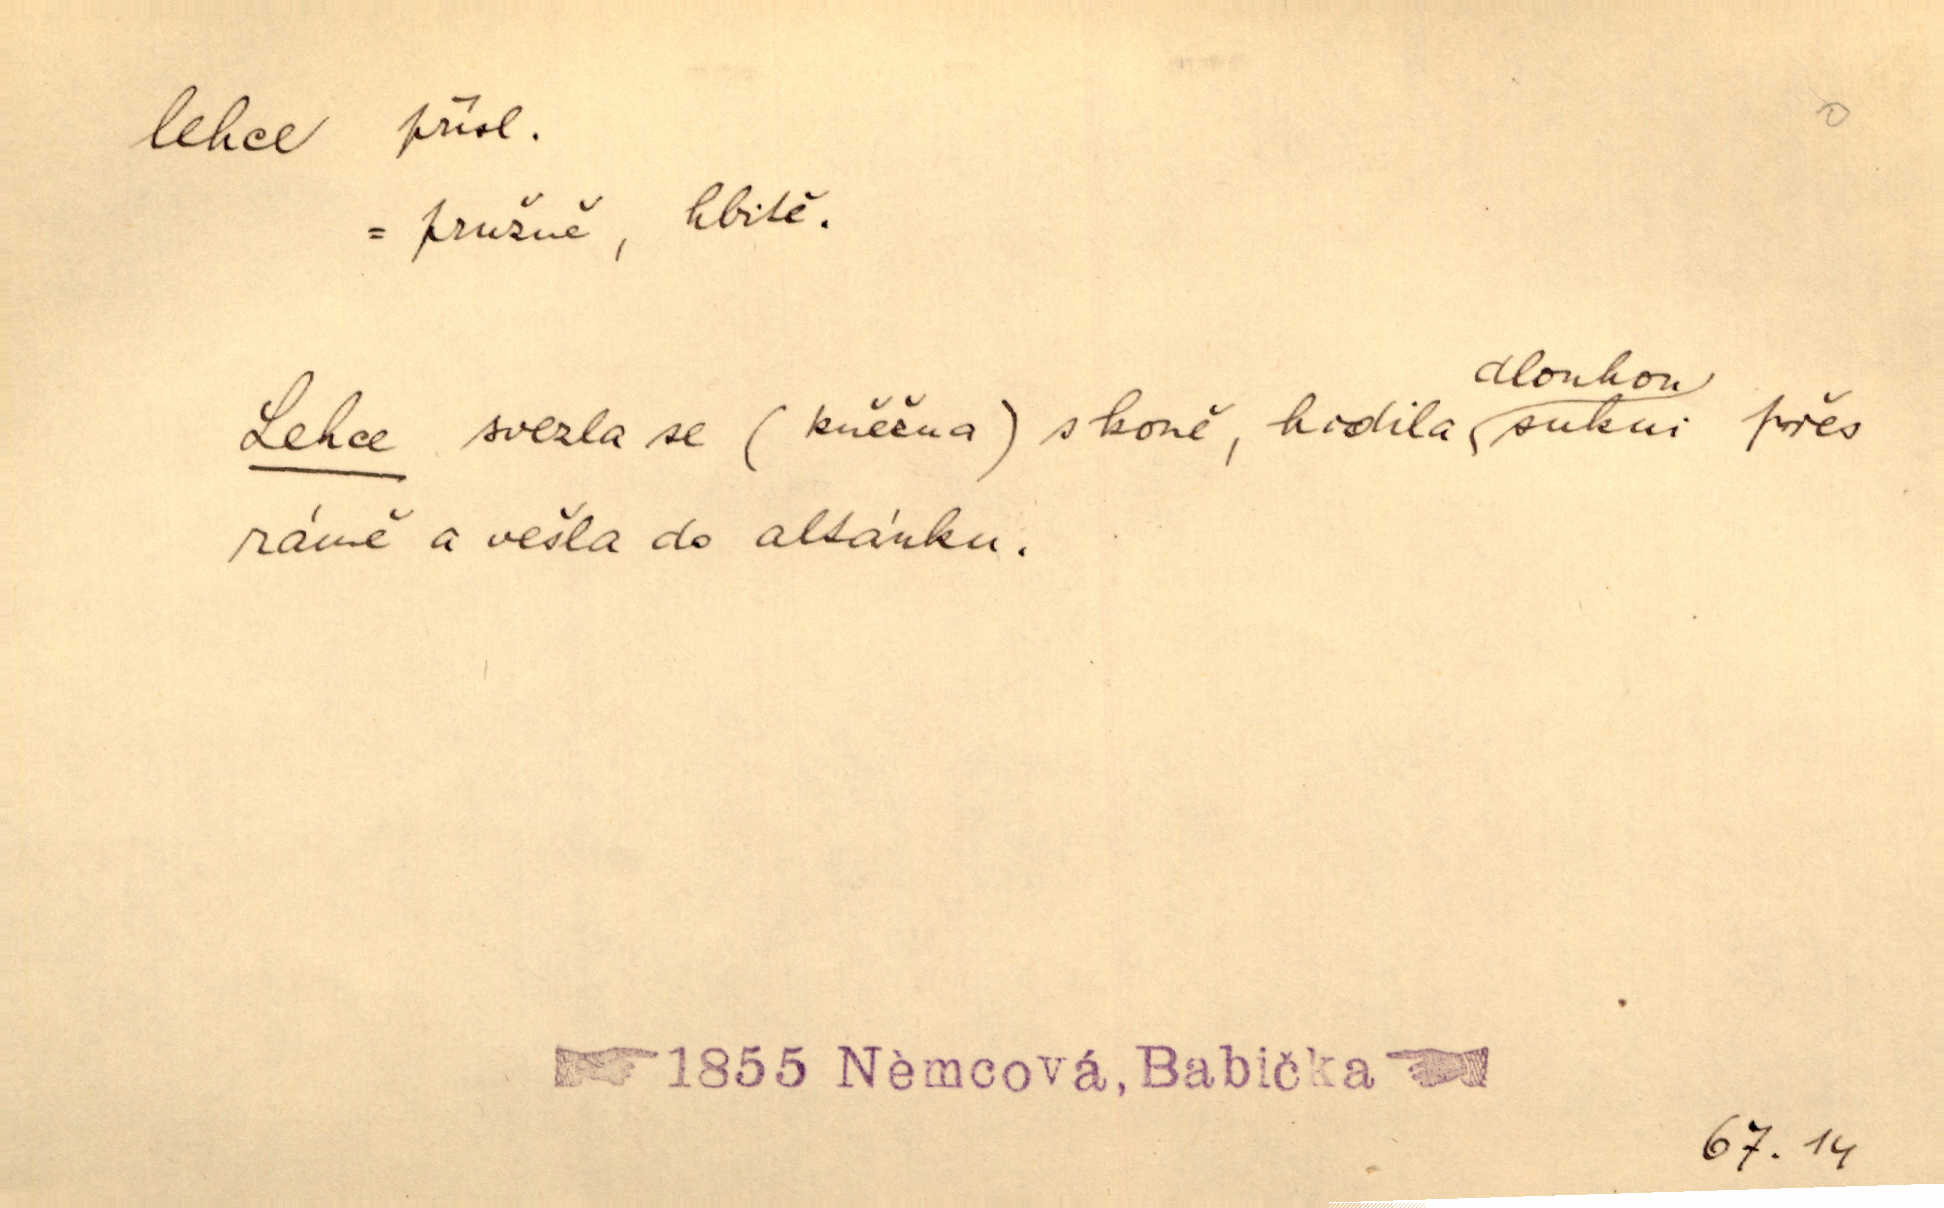 lehce přísl.
= pružně, hbitě.
Lehce svezla se (kněžna) s koně, hodila dlouhou sukni přes
rámě a vešla do altánku.
☛ 1855 Němcová, Babička ☚
67.14